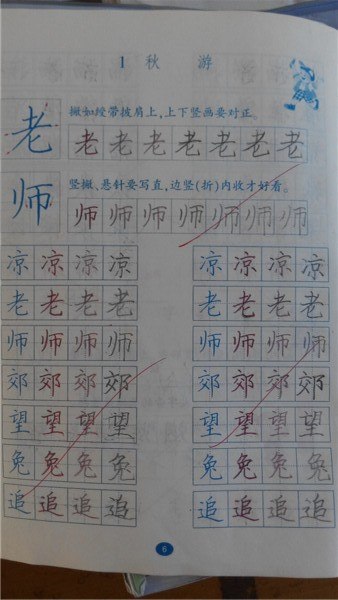 1 秋 游
老 撇如绶带披肩上,上下竖画要对正。
老老老老老老老
师 竖撇、悬针要写直,边竖(折)内收才好看。
师师师师师师师
凉凉凉凉 凉凉凉凉
老老老老 老老老老
师师师师 师师师师
郊郊郊郊 郊郊郊郊
望望望望 望望望望
兔兔兔兔 兔兔兔兔
追追追追 追追追追
6